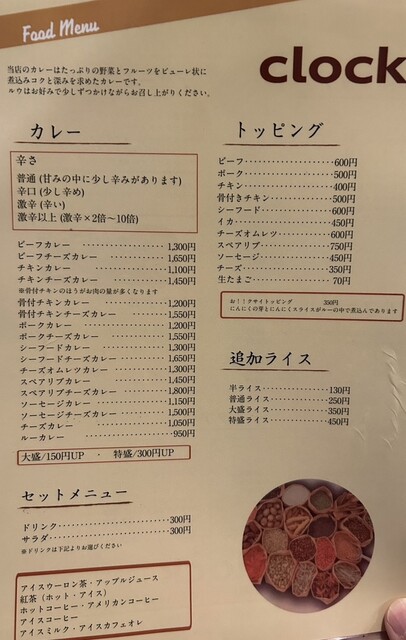 Food Menu
clock
当店のカレーはたっぷりの野菜とフルーツをピューレ状に
煮込みコクと深みを求めたカレーです。
ルウはお好みで少しずつかけながらお召し上がりください。
カレー
辛さ
普通 (甘みの中に少し辛みがあります)
辛口 (少し辛め)
激辛 (辛い)
激辛以上 (激辛×2倍～10倍)
ビーフカレー 1,300円
ビーフチーズカレー 1,650円
チキンカレー 1,100円
チキンチーズカレー 1,450円
※骨付チキンのほうがお肉の量が多くなります
骨付チキンカレー 1,200円
骨付チキンチーズカレー 1,550円
ポークカレー 1,200円
ポークチーズカレー 1,550円
シーフードカレー 1,300円
シーフードチーズカレー 1,650円
チーズオムレツカレー 1,300円
スペアリブカレー 1,450円
スペアリブチーズカレー 1,800円
ソーセージカレー 1,150円
ソーセージチーズカレー 1,500円
チーズカレー 1,050円
ルーカレー 950円
大盛/150円UP ・ 特盛/300円UP
セットメニュー
ドリンク 300円
サラダ 300円
※ドリンクは下記よりお選びください
アイスウーロン茶・アップルジュース
紅茶 (ホット・アイス)
ホットコーヒー・アメリカンコーヒー
アイスコーヒー
アイスミルク・アイスカフェオレ
トッピング
ビーフ 600円
ポーク 500円
チキン 400円
骨付きチキン 500円
シーフード 600円
イカ 450円
チーズオムレツ 600円
スペアリブ 750円
ソーセージ 450円
チーズ 350円
生たまご 70円
お！！クサイトッピング 350円
にんにくの芽とにんにくスライスがルーの中で煮込んであります
追加ライス
半ライス 130円
普通ライス 250円
大盛ライス 350円
特盛ライス 450円